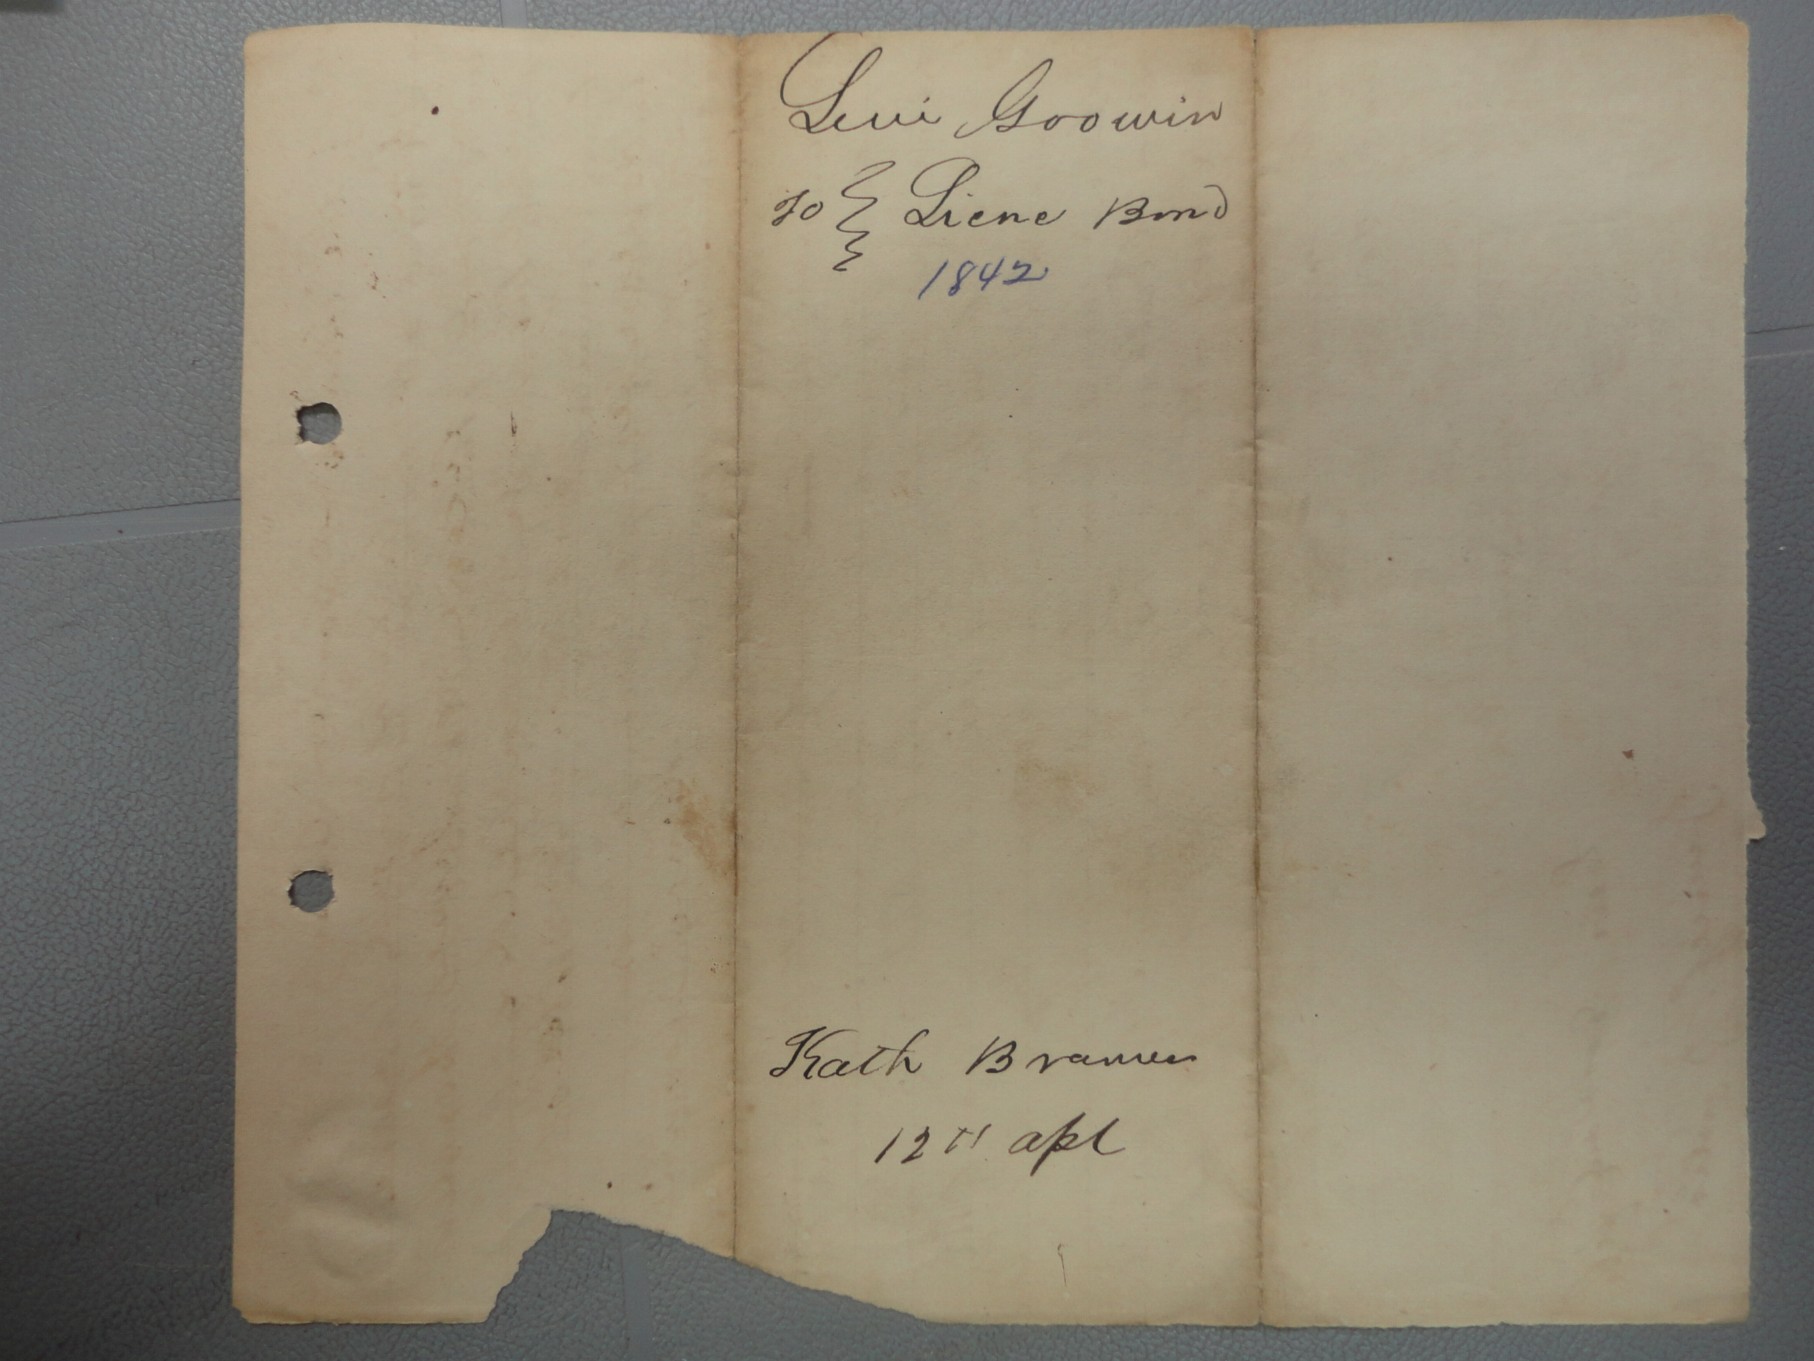 Levi Goowin
To Liene Bond
1842
Kath Bramer
12th apl